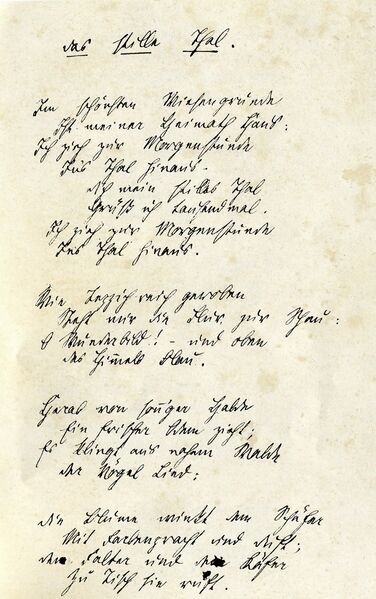 das stille Thal.
Im schönsten Wiesengrunde
Ist meiner Heimath Haus:
Ich zieh zur Morgenstunde
Ins Thal hinaus.
Dich mein stilles Thal
Grüß ich tausendmal.
Ich zieh zur Morgenstunde
Ins Thal hinaus.
Wie Teppich reich gewoben
Steht mir die Flur zur Schau:
O Wunderbild! - und oben
des Himmels Blau.
Herab von sonn'ger Halde
Ein frischer Odem zieht;
Es klingt aus nahem Walde
der Vögel Lied:
die Blume winkt dem Schäfer
Mit Farbenpracht und Duft;
den Falter und den Käfer
Zu Tisch sie ruft.